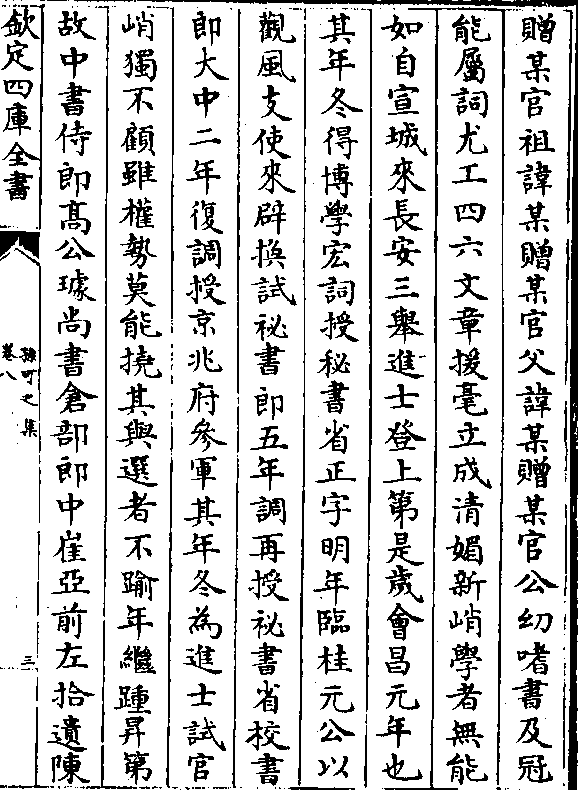 贈某官祖諱某贈某官父諱某贈某官公幼嗜書及冠
能屬詞尤工四六文章援毫立成清媚新峭學者無能
如自宣城來長安三舉進士登上第是歲會昌元年也
其年冬得博學宏詞授秘書省正字明年臨桂元公以
觀風支使來辟換試祕書郎五年調再授祕書省校書
郎大中二年復調授京兆府參軍其年冬為進士試官
峭獨不顧雖權勢莫能撓其與選者不踰年繼踵昇第
故中書侍郎高公璩尚書倉部郎中崔亞前左拾遺陳
欽定四庫全書
孫可之集
卷八
三